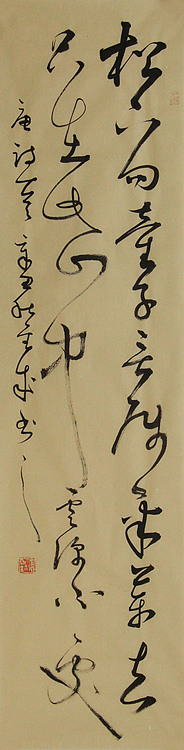 松下问童子言师采药去
只在此山中雲深不知處
唐詩一首